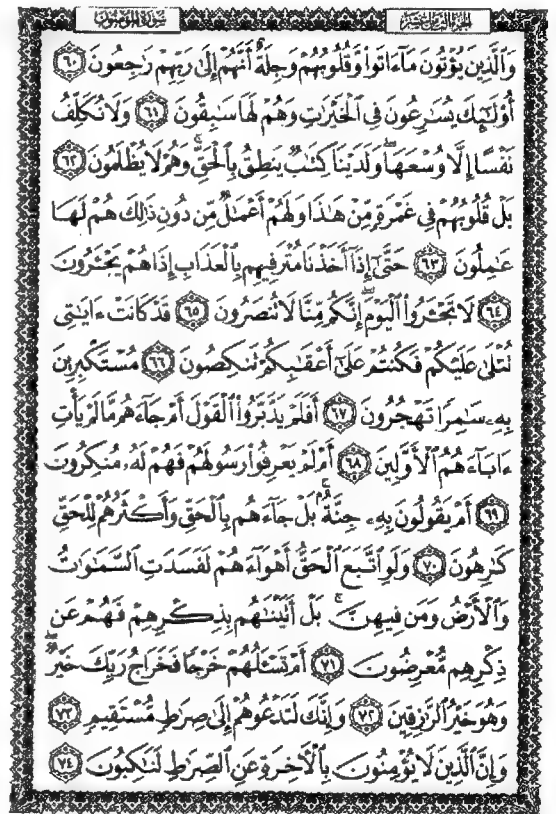 الجزء الثامن عشر
سورة المؤمنون
وَٱلَّذِينَ يُؤْتُونَ مَآ ءَاتَوا۟ وَّقُلُوبُهُمْ وَجِلَةٌ أَنَّهُمْ إِلَىٰ رَبِّهِمْ رَٰجِعُونَ ٦٠
أُو۟لَٰٓئِكَ يُسَٰرِعُونَ فِى ٱلْخَيْرَٰتِ وَهُمْ لَهَا سَٰبِقُونَ ٦١ وَلَا نُكَلِّفُ
نَفْسًا إِلَّا وُسْعَهَا ۖ وَلَدَيْنَا كِتَٰبٌ يَنطِقُ بِٱلْحَقِّ ۚ وَهُمْ لَا يُظْلَمُونَ ٦٢
بَلْ قُلُوبُهُمْ فِى غَمْرَةٍ مِّنْ هَٰذَا وَلَهُمْ أَعْمَٰلٌ مِّن دُونِ ذَٰلِكَ هُمْ لَهَا
عَٰمِلُونَ ٦٣ حَتَّىٰٓ إِذَآ أَخَذْنَا مُتْرَفِيهِم بِٱلْعَذَابِ إِذَا هُمْ يَجْـَٔرُونَ
٦٤ لَا تَجْـَٔرُوا۟ ٱلْيَوْمَ ۖ إِنَّكُم مِّنَّا لَا تُنصَرُونَ ٦٥ قَدْ كَانَتْ ءَايَٰتِى
تُتْلَىٰ عَلَيْكُمْ فَكُنتُمْ عَلَىٰٓ أَعْقَٰبِكُمْ تَنكِصُونَ ٦٦ مُسْتَكْبِرِينَ
بِهِۦ سَٰمِرًا تَهْجُرُونَ ٦٧ أَفَلَمْ يَدَّبَّرُوا۟ ٱلْقَوْلَ أَمْ جَآءَهُم مَّا لَمْ يَأْتِ
ءَابَآءَهُمُ ٱلْأَوَّلِينَ ٦٨ أَمْ لَمْ يَعْرِفُوا۟ رَسُولَهُمْ فَهُمْ لَهُۥ مُنكِرُونَ
٦٩ أَمْ يَقُولُونَ بِهِۦ جِنَّةٌۢ ۚ بَلْ جَآءَهُم بِٱلْحَقِّ وَأَكْثَرُهُمْ لِلْحَقِّ
كَٰرِهُونَ ٧٠ وَلَوِ ٱتَّبَعَ ٱلْحَقُّ أَهْوَآءَهُمْ لَفَسَدَتِ ٱلسَّمَٰوَٰتُ
وَٱلْأَرْضُ وَمَن فِيهِنَّ ۚ بَلْ أَتَيْنَٰهُم بِذِكْرِهِمْ فَهُمْ عَن
ذِكْرِهِم مُّعْرِضُونَ ٧١ أَمْ تَسْـَٔلُهُمْ خَرْجًا فَخَرَاجُ رَبِّكَ خَيْرٌ ۖ
وَهُوَ خَيْرُ ٱلرَّٰزِقِينَ ٧٢ وَإِنَّكَ لَتَدْعُوهُمْ إِلَىٰ صِرَٰطٍ مُّسْتَقِيمٍ ٧٣
وَإِنَّ ٱلَّذِينَ لَا يُؤْمِنُونَ بِٱلْءَاخِرَةِ عَنِ ٱلصِّرَٰطِ لَنَٰكِبُونَ ٧٤